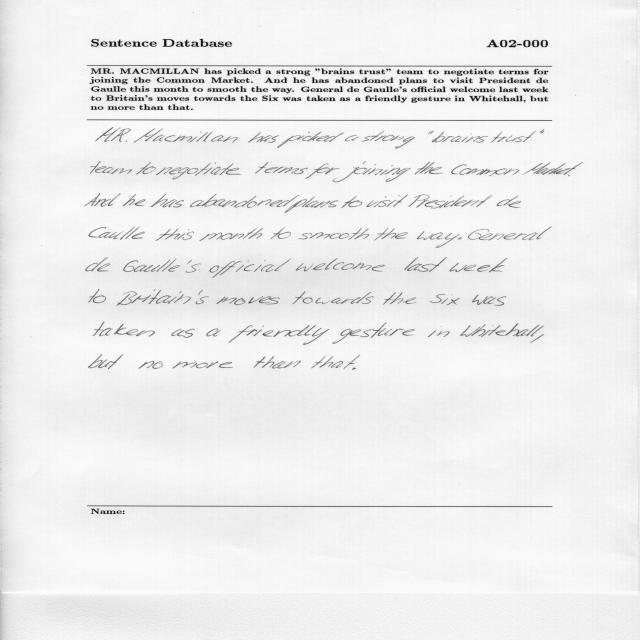 Sentence Database A02-000
MR. MACMILLAN has picked a strong "brains trust" team to negotiate terms for
joining the Common Market. And he has abandoned plans to visit President de
Gaulle this month to smooth the way. General de Gaulle's official welcome last week
to Britain's moves towards the Six was taken as a friendly gesture in Whitehall, but
no more than that.
MR. Macmillan has picked a strong "brains trust"
team to negotiate terms for joining the Common Market.
And he has abandoned plans to visit President de
Gaulle this month to smooth the way. General
de Gaulle's official welcome last week
to Britain's moves towards the Six was
taken as a friendly gesture in Whitehall,
but no more than that.
Name: